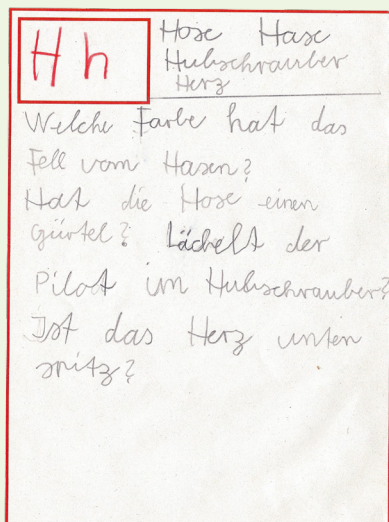 H h
Hose Hase
Hubschrauber
Herz
Welche Farbe hat das
Fell vom Hasen?
Hat die Hose einen
Gürtel? Lächelt der
Pilot im Hubschrauber?
Ist das Herz unten
spitz?